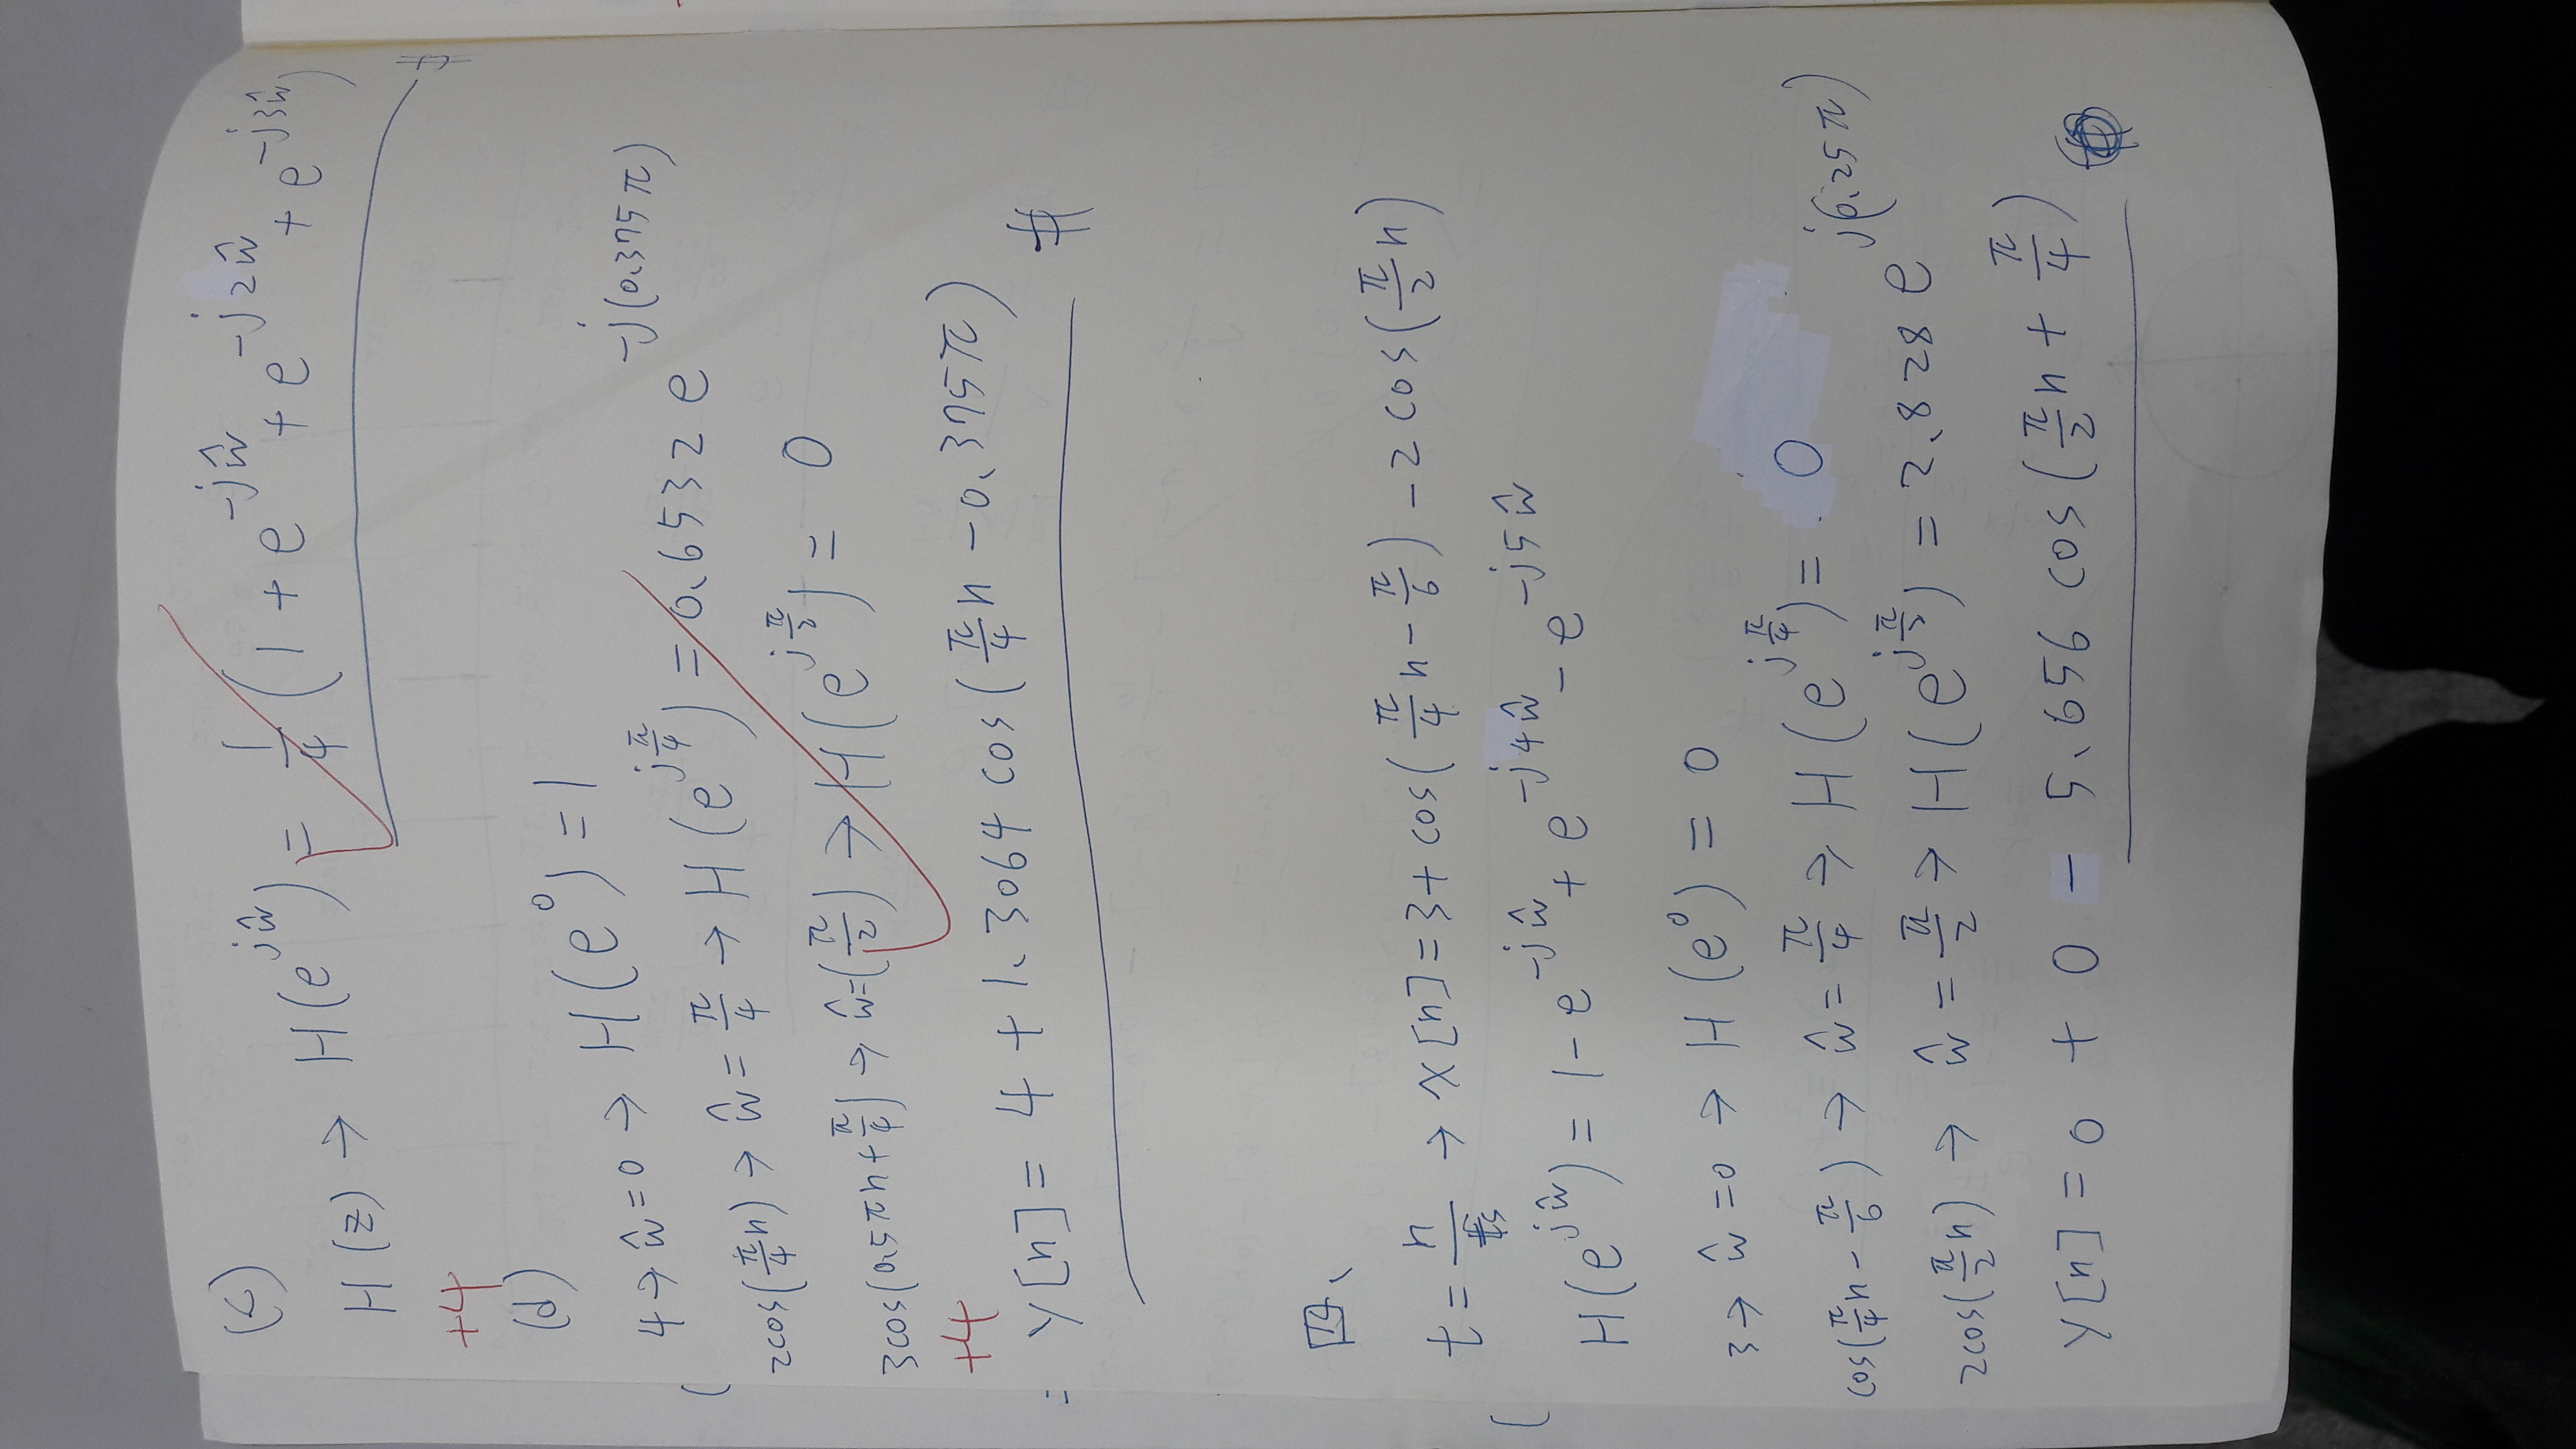 (c)
H(z) → H(e^{jŵ}) = 1/4 (1 + e^{-jŵ} + e^{-j2ŵ} + e^{-j3ŵ}) #
+4
(d)
4 → ŵ = 0 → H(e^0) = 1
2cos(π/4 n) → ŵ = π/4 → H(e^{jπ/4}) = 0.6532 e^{-j(0.375π)}
3cos(0.5πn + π/4) → ŵ = (π/2) → H(e^{jπ/2}) = 0
+4
y[n] = 4 + 1.3064 cos(π/4 n - 0.375π) #
四、
t = n/fs → x[n] = 3 + cos(π/4 n - π/6) - 2 cos(π/2 n)
H(e^{jŵ}) = 1 - e^{-jŵ} + e^{-j4ŵ} - e^{-j5ŵ}
3 → ŵ = 0 → H(e^0) = 0
cos(π/4 n - π/6) → ŵ = π/4 → H(e^{jπ/4}) = 0
2cos(π/2 n) → ŵ = π/2 → H(e^{jπ/2}) = 2.828 e^{j(0.25π)}
y[n] = 0 + 0 - 5.656 cos(π/2 n + π/4)